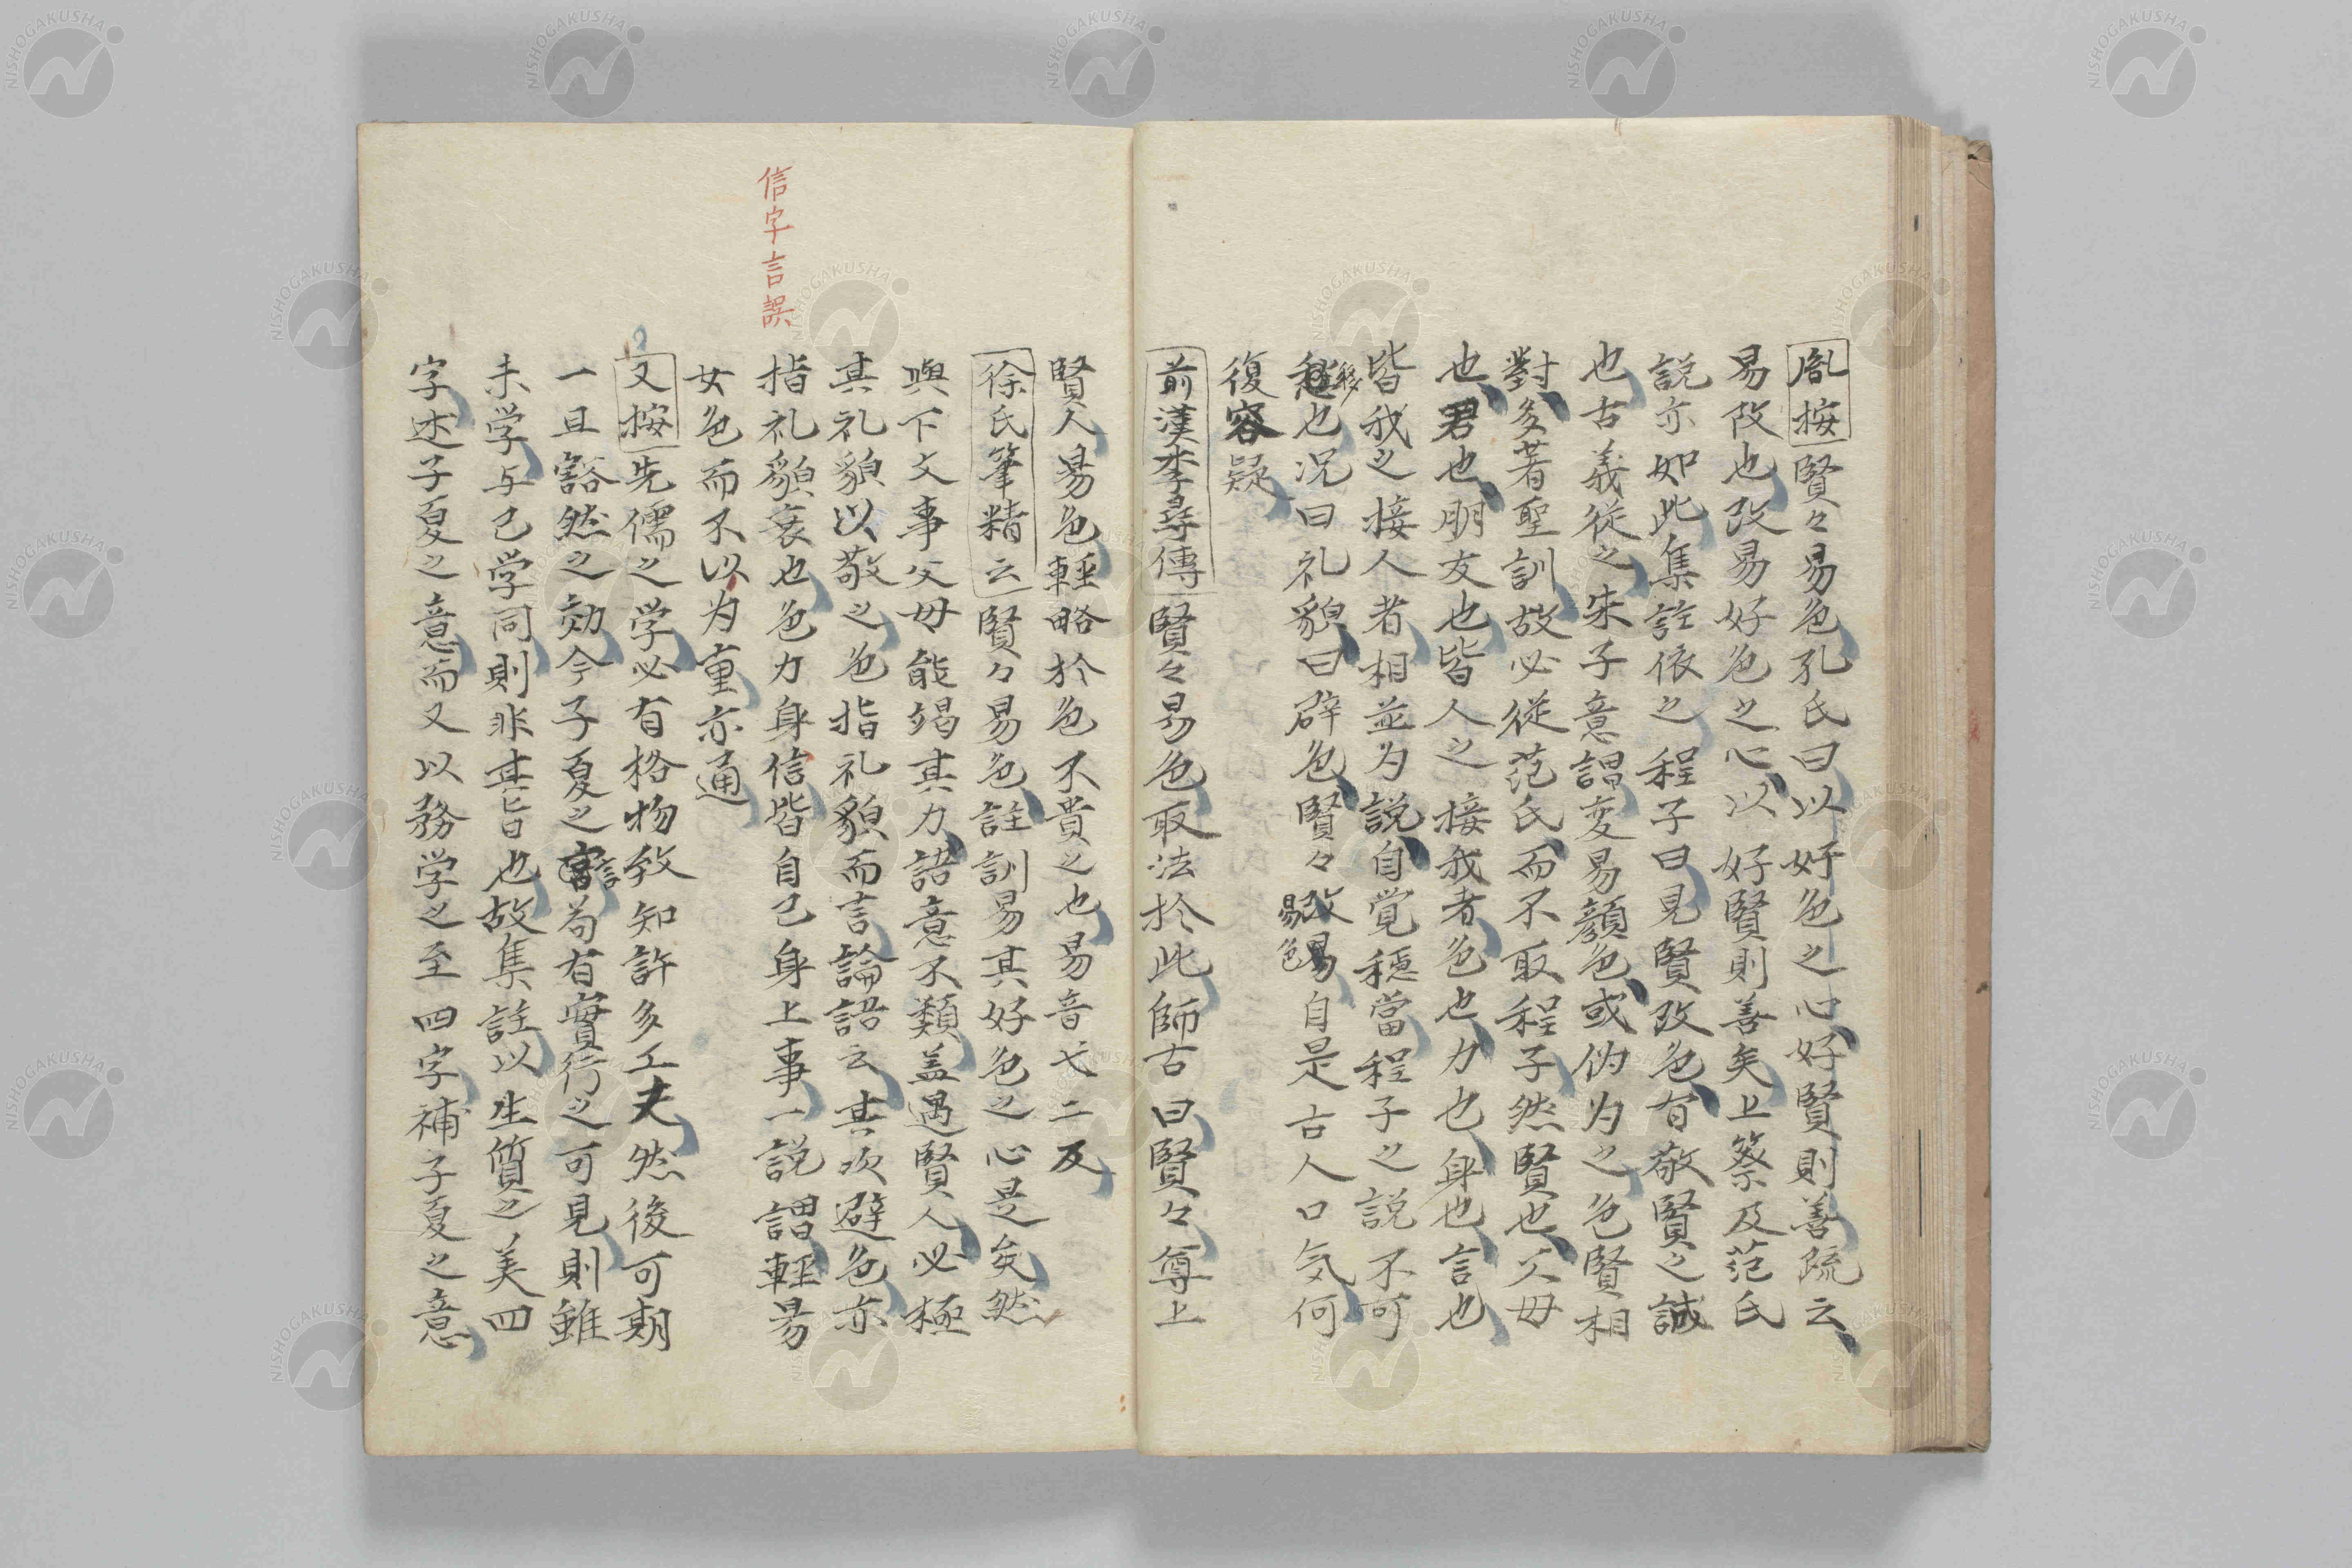 胤按賢々易色孔氏曰以好色之心好賢則善疏云
易改也改易好色之心以好賢則善矣上蔡及范氏
説亦如此集註依之程子曰見賢改色有敬賢之誠
也古義従之朱子意謂変易顔色或偽为之色賢相
對多著聖訓故必従范氏而不取程子然賢也父毋
也君也朋友也皆人之接我者色也力也身也言也
皆我之接人者相並为説自覚穏當程子之説不可
移也况曰礼貌曰辟色賢々改易自是古人口気何
易色
復容疑
前漢李尋傳賢々易色取法於此師古曰賢々尊上
賢人易色軽略於色不貴之也易音弋二反
徐氏筆精云賢々易色註訓易其好色之心是矣然
與下文事父毋能竭其力語意不類盖遇賢人必極
其礼貌以敬之色指礼貌而言論語云其次避色亦
信字言誤
指礼貌衰也色力身信皆自己身上事一説謂軽易
女色而不以为重亦通
又按先儒之学必有格物致知許多工夫然後可期
一旦豁然之効今子夏之言苟有實行之可見則雖
未学与已学同則非其旨也故集註以生質之美四
字述子夏之意而又以務学之至四字補子夏之意
NISHOGAKUSHA